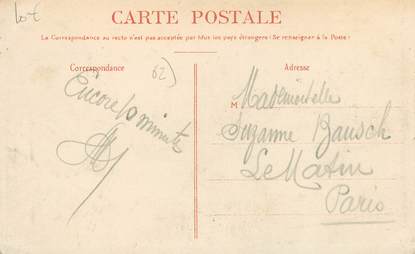 Lot
CARTE POSTALE
La Correspondance au recto n'est pas acceptée par tous les pays étrangers (Se renseigner à la Poste)
Correspondance
Adresse
62)
Encore 10 minutes
M Mademoiselle
Suzanne Bausch
Le Matin
Paris